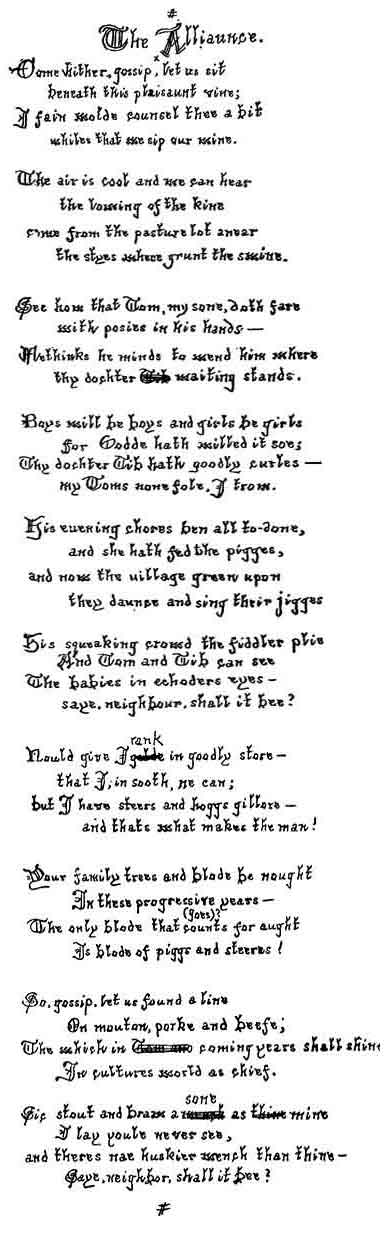 #
The Alliaunce.
x
Come hither, gossip, let us sit
beneath this plaisaunt vine;
I fain wolde counsel thee a bit
whiles that we sip our wine.
The air is cool and we can hear
the lowing of the kine
come from the pasture lot anear
the styes where grunt the swine.
See how that Tom, my sone, doth fare
with posies in his hands —
Methinks he minds to wend him where
thy dochter Tib waiting stands.
Boys will be boys and girls be girls
for Godde hath willed it soe;
Thy dochter Tib hath goodly curles —
my Toms none fole, I trow.
His evening chores ben all to-done,
and she hath fed the pigges,
and now the village green upon
they daunce and sing their jigges
His squeaking crowd the fiddler plie
And Tom and Tib can see
The babies in echoders eyes —
saye, neighbour, shall it bee?
rank
Nould give I golde in goodly store —
that I, in sooth, ne can;
but I have steers and hoggs gillore —
and thats what makes the man!
Your family trees and blode be nought
In these progressive years —
(goes)?
The only blode that counts for aught
Is blode of piggs and steeres!
So, gossip, let us found a line
On mouton, porke and beefe;
The which in coming years shall shine
In cultures world as chief.
sone
Sic stout and braw a wench as thine mine
I lay youle never see,
and theres nae huskier wench than thine —
Saye, neighbor, shall it bee?
#